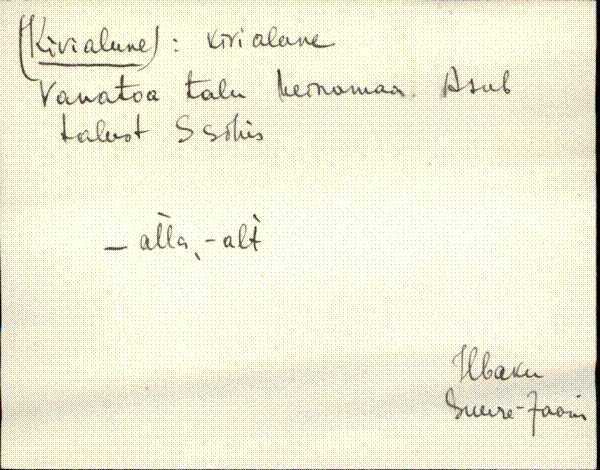 (Kivialune): kivialune
Vanatoa talu heinamaa. Asub
talust S sihis
– alla, -alt
Ilbaku
Suure-Jaani